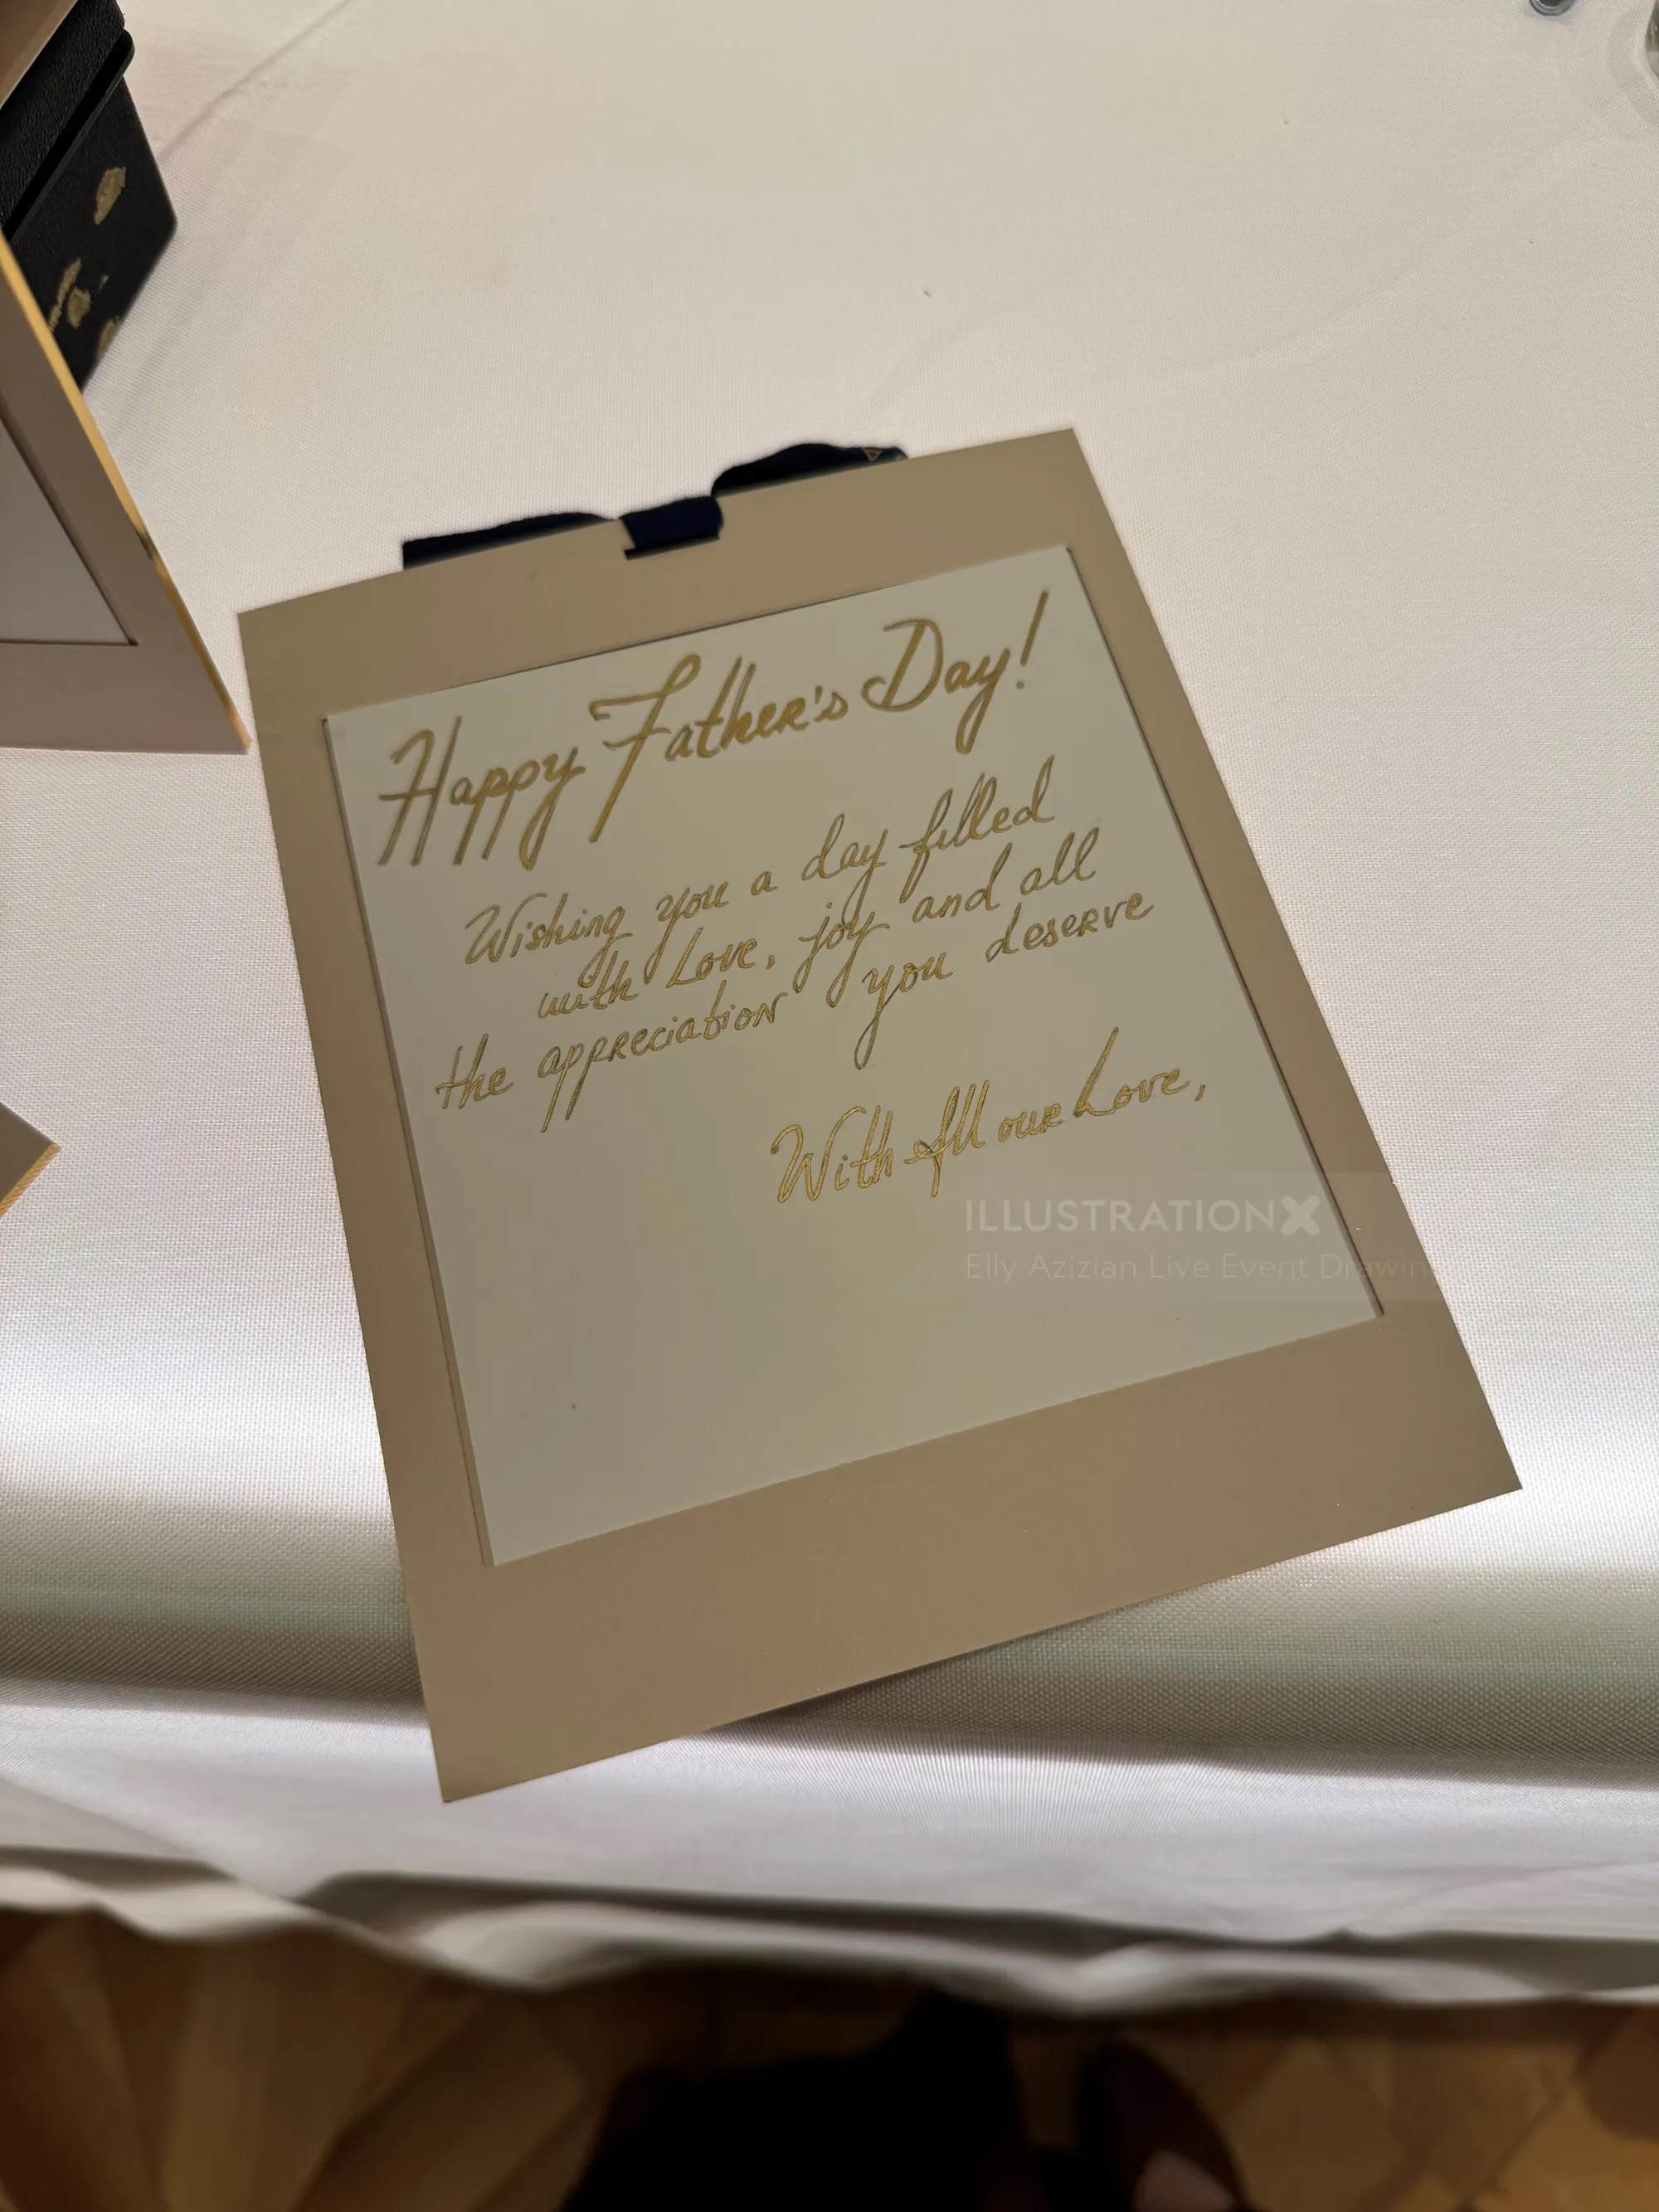 Happy Father's Day!
Wishing you a day filled
with Love, joy and all
the appreciation you deserve
With All our Love,
ILLUSTRATIONX
Elly Azizian Live Event Drawin